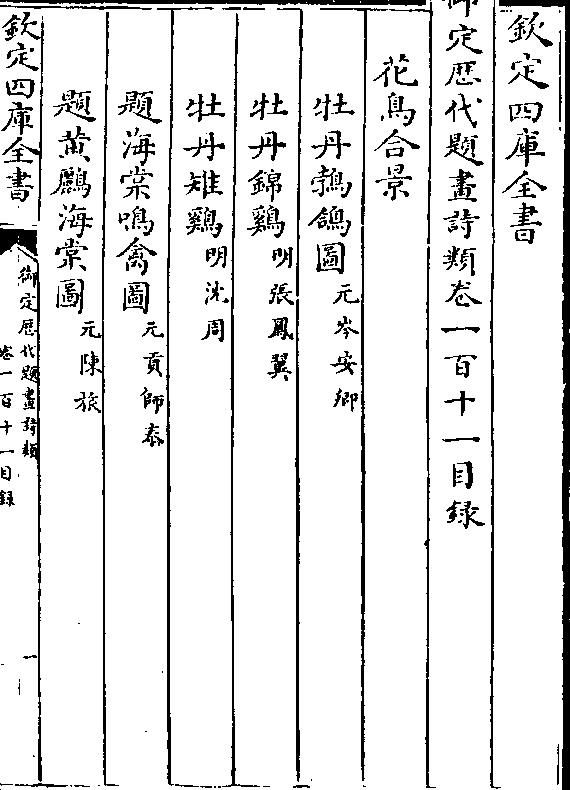 欽定四庫全書
御定歷代題畫詩類卷一百十一目錄
花鳥合景
牡丹鵓鴿圖 元岑安卿
牡丹錦鷄 明張鳳翼
牡丹雉鷄 明沈周
題海棠鳴禽圖 元貢師泰
題黄鸝海棠圖 元陳旅
欽定四庫全書
御定歷代題畫詩類
卷一百十一目錄
一